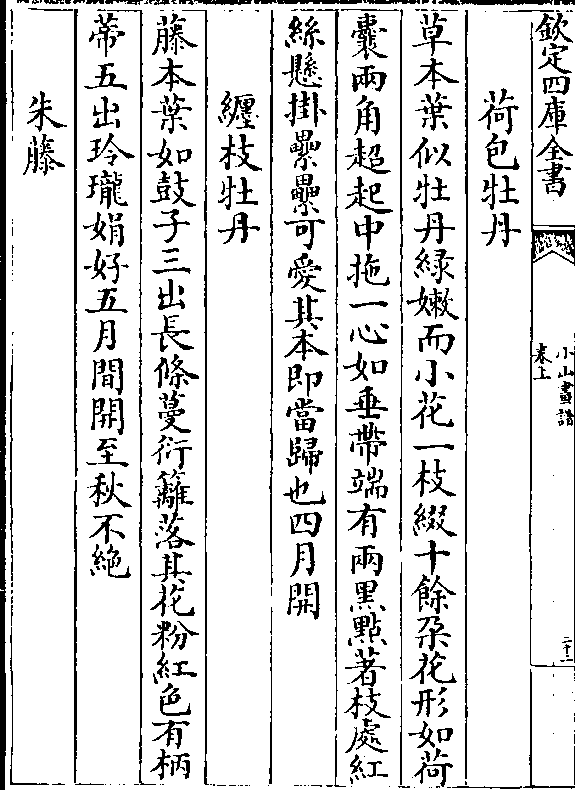 欽定四庫全書
小山畫譜
卷上
二十二
荷包牡丹
草本葉似牡丹緑嫩而小花一枝綴十餘朶花形如荷
囊兩角超起中拖一心如垂帶端有兩黑點著枝處紅
絲懸掛纍纍可愛其本即當歸也四月開
纏枝牡丹
藤本葉如鼓子三出長條蔓衍籬落其花粉紅色有柄
蒂五出玲瓏娟好五月間開至秋不絶
朱藤